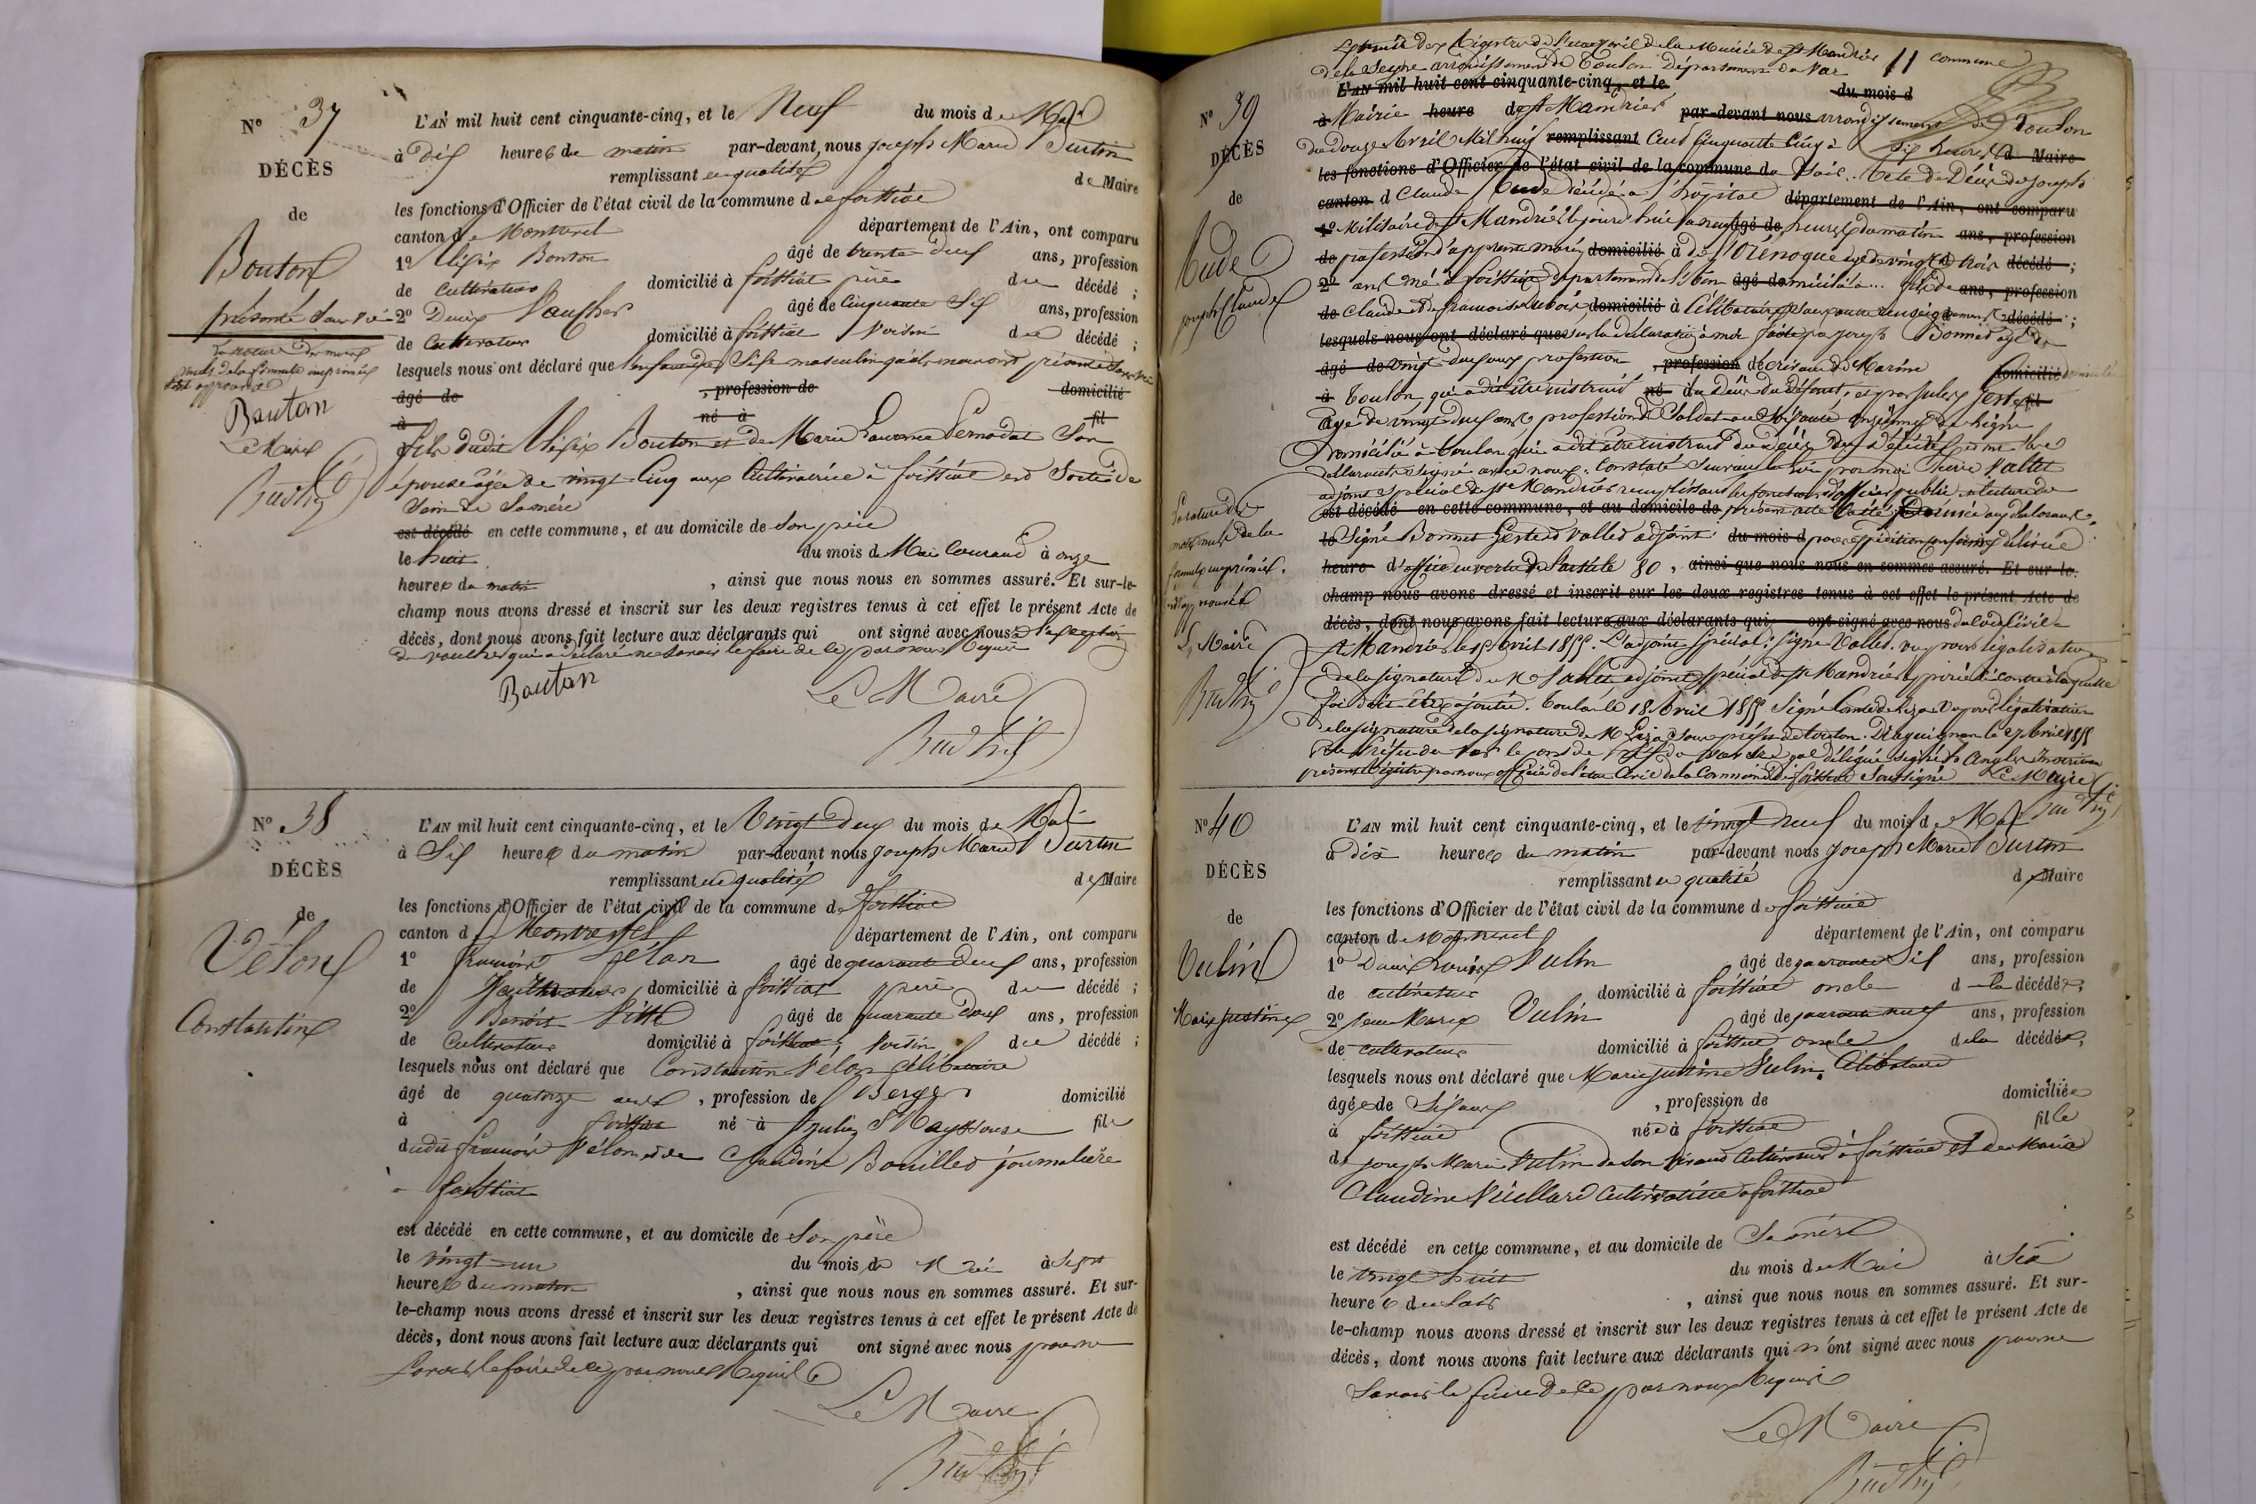 N° 37
DÉCÈS
de
Bouton
présenté sans vie
La rature des mots
nuls de la formule imprimée
est approuvée
Bouton
Le Maire
L'AN mil huit cent cinquante-cinq, et le Neuf du mois de Mai
à Dix heures du matin par-devant nous Joseph Marie
remplissant en qualité de Maire
les fonctions d'Officier de l'état civil de la commune de foissiat
canton de Montrevel département de l'Ain, ont comparu
1° Bouton âgé de trente deux ans, profession
de cultivateur domicilié à foissiat père du décédé ;
2° Denis Vaucher âgé de Cinquante Six ans, profession
de Cultivateur domicilié à foissiat Voisin du décédé ;
lesquels nous ont déclaré que Sexe masculin présenté sans vie
âgé de , profession de domicilié
à né à fil
fils dudit Bouton et de Marie Pernodat Son
épouse âgée de vingt Cinq ans Cultivatrice à foissiat est Sorti du
Sein de Sa mère
est décédé en cette commune, et au domicile de Son père
le huit du mois de Mai Courant à onze
heures du matin , ainsi que nous nous en sommes assuré. Et sur-le-
champ nous avons dressé et inscrit sur les deux registres tenus à cet effet le présent Acte de
décès, dont nous avons fait lecture aux déclarants qui ont signé avec nous à l'exception
de vaucher qui a déclaré ne Savoir le faire de ce par nous Requis
Bouton
Le Maire
N° 38
DÉCÈS
de
Vélon
Constantin
L'AN mil huit cent cinquante-cinq, et le Vingt Deux du mois de Mai
à Six heures du matin par-devant nous Joseph Marie
remplissant en qualité de Maire
les fonctions d'Officier de l'état civil de la commune de foissiat
canton de Montrevel département de l'Ain, ont comparu
1° françois Vélon âgé de quarante Deux ans, profession
de Cultivateur domicilié à foissiat père du décédé ;
2° Benoit Pitte âgé de quarante Deux ans, profession
de Cultivateur domicilié à foissiat Voisin du décédé ;
lesquels nous ont déclaré que Constantin Vélon Célibataire
âgé de quatorze ans , profession de Berger domicilié
à foissiat né à Reyssouze fils
dudit françois Vélon et de Claudine Bouillet journalière
à foissiat
est décédé en cette commune, et au domicile de Son père
le vingt un du mois de Mai à Sept
heures du matin , ainsi que nous nous en sommes assuré. Et sur-
le-champ nous avons dressé et inscrit sur les deux registres tenus à cet effet le présent Acte de
décès, dont nous avons fait lecture aux déclarants qui ont signé avec nous pour ne
Savoir le faire de ce par nous Requis
Le Maire
11
N° 39
DÉCÈS
de
Joseph Claude
La rature des
mots nuls de la
formule imprimée
est approuvée
Le Maire
Extrait des Registres de l'état civil de la Mairie de St Mandrier commune
de la Seyne arrondissement de Toulon Département du Var
L'AN mil huit cent cinquante-cinq, et le du mois d
à Mairie heure de St Mandrier par-devant nous arrondissement de Toulon
du Douze Avril Mil huit remplissant Cent Cinquante Cinq à Six heures d Maire
les fonctions d'Officier de l'état civil de la commune du Soir. Acte de Décès de Joseph
canton d Claude décédé à l'hôpital département de l'Ain, ont comparu
1° Militaire de St Mandrier aujourd'hui à neuf âgé de heures du matin ans, profession
de profession d'apprenti marin domicilié à âgé de vingt trois décédé ;
2° ans né à foissiat département de l'Ain âgé de domicilié à ... fils de ans, profession
de Claude et de françoise Dubois domicilié à Célibataire Sans autre renseignement décédé ;
lesquels nous ont déclaré que sur la déclaration à moi faite par Joseph Bonnet âgé de
âgé de vingt deux ans profession , profession d'écrivain de Marine domicilié
à Toulon, qui a dit être instruit né du Décès du défunt, et par Jules Geste fil
âgé de vingt deux ans profession de Soldat au Soixante onzième de ligne
Domicilié à Toulon qui a dit être instruit du décès
déclarants Signé avec nous. Constaté Suivant la loi par moi Vallet
adjoint Spécial de St Mandrier remplissant les fonctions d'officier public
est décédé en cette commune, et au domicile de présent acte
le Signé Bonnet Geste et Vallet adjoint du mois d pour expédition conforme délivrée
heure d'office en vertu de l'article 80 , ainsi que nous nous en sommes assuré. Et sur-le-
champ nous avons dressé et inscrit sur les deux registres tenus à cet effet le présent Acte de
décès, dont nous avons fait lecture aux déclarants qui ont signé avec nous du Code Civil
St Mandrier le Avril 1855. L'adjoint Spécial : Signé Vallet. vu pour légalisation
de la Signature de M. Vallet adjoint Spécial de St Mandrier
foi doit être ajoutée. Toulon le 18 Avril 1855 Signé vu pour légalisation
de la signature de la signature de M. Sous préfet de Toulon. Draguignan le 27 Avril 1855
présent Registre par nous officier de l'état Civil de la Commune de foissiat Soussigné Le Maire
N° 40
DÉCÈS
de
Vulin
Marie Justine
L'AN mil huit cent cinquante-cinq, et le vingt neuf du mois de Mai
à dix heures du matin par-devant nous Joseph Marie
remplissant en qualité de Maire
les fonctions d'Officier de l'état civil de la commune de foissiat
canton de Montrevel département de l'Ain, ont comparu
1° Denis Vulin âgé de quarante Six ans, profession
de cultivateur domicilié à foissiat oncle de la décédée ;
2° Jean Marie Vulin âgé de quarante neuf ans, profession
de cultivateur domicilié à foissiat oncle de la décédée ;
lesquels nous ont déclaré que Marie Justine Vulin Célibataire
âgée de Six ans , profession de domiciliée
à foissiat née à foissiat fille
de Joseph Marie Vulin de Son vivant Cultivateur à foissiat et de Marie
Claudine Vuillard Cultivatrice à foissiat
est décédé en cette commune, et au domicile de Sa mère
le vingt huit du mois de Mai à Six
heures du Soir , ainsi que nous nous en sommes assuré. Et sur-
le-champ nous avons dressé et inscrit sur les deux registres tenus à cet effet le présent Acte de
décès, dont nous avons fait lecture aux déclarants qui n'ont signé avec nous pour ne
Savoir le faire de ce par nous Requis
Le Maire